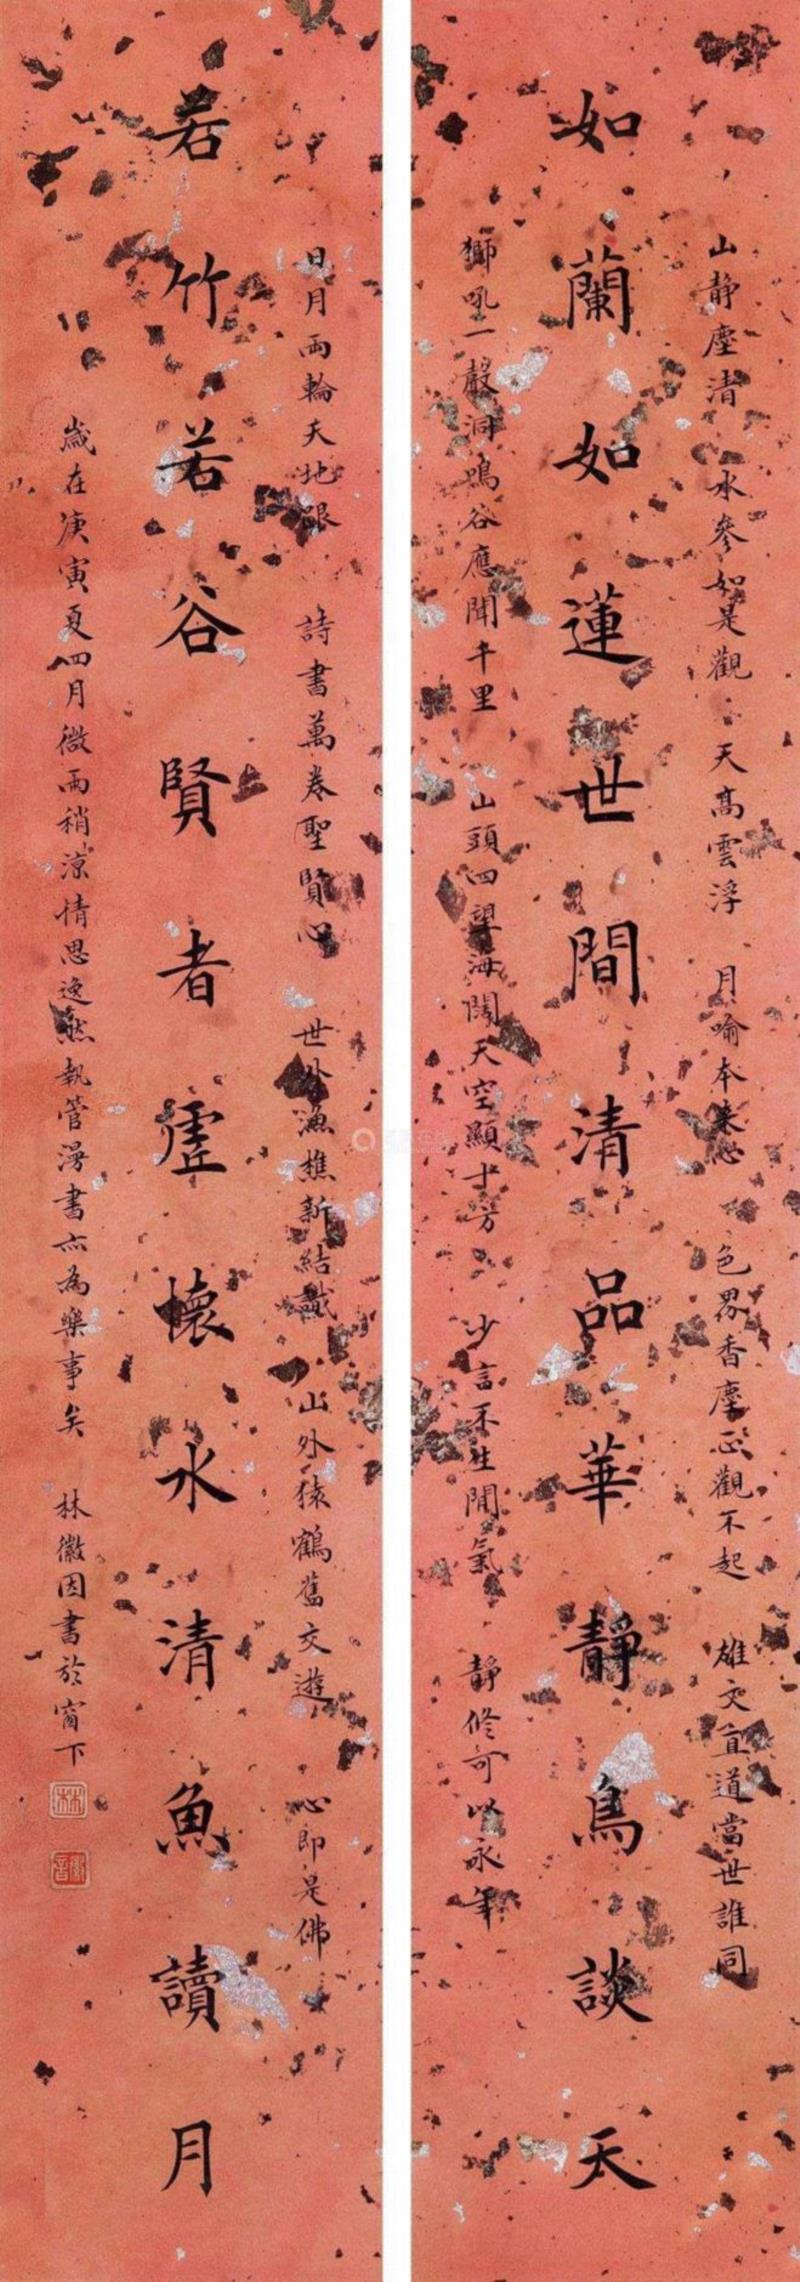 山静塵清 水參如是觀 天高雲浮 月喻本来心 色界香塵正觀不起 雄文直道當世誰同
如蘭如蓮世間清品華靜鳥談天
獅吼一聲洞鳴谷應聞千里 山頭四望海闊天空顯十方 少言不生閒氣 靜修可以永年
日月兩輪天地眼 詩書萬卷聖賢心 世外漁樵新結識 山外猿鶴舊交遊 心即是佛
若竹若谷賢者虛懷水清魚讀月
歲在庚寅夏四月微雨稍涼情思逸然執管漫書亦為樂事矣 林徽因書於窗下
林